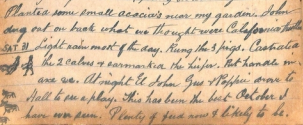 Planted some small acacia's near my garden. John
dug out on back what we thought were California thistle
SAT. 31 Light rain most of the day. Rung the 3 pigs. Castrated
the 2 calves & earmarked the heifer. Put handle in
axe. At night E John Gus & Poppie went to
Hall to see a play. This has been the best October I
have ever seen. Plenty of feed now & likely to be.